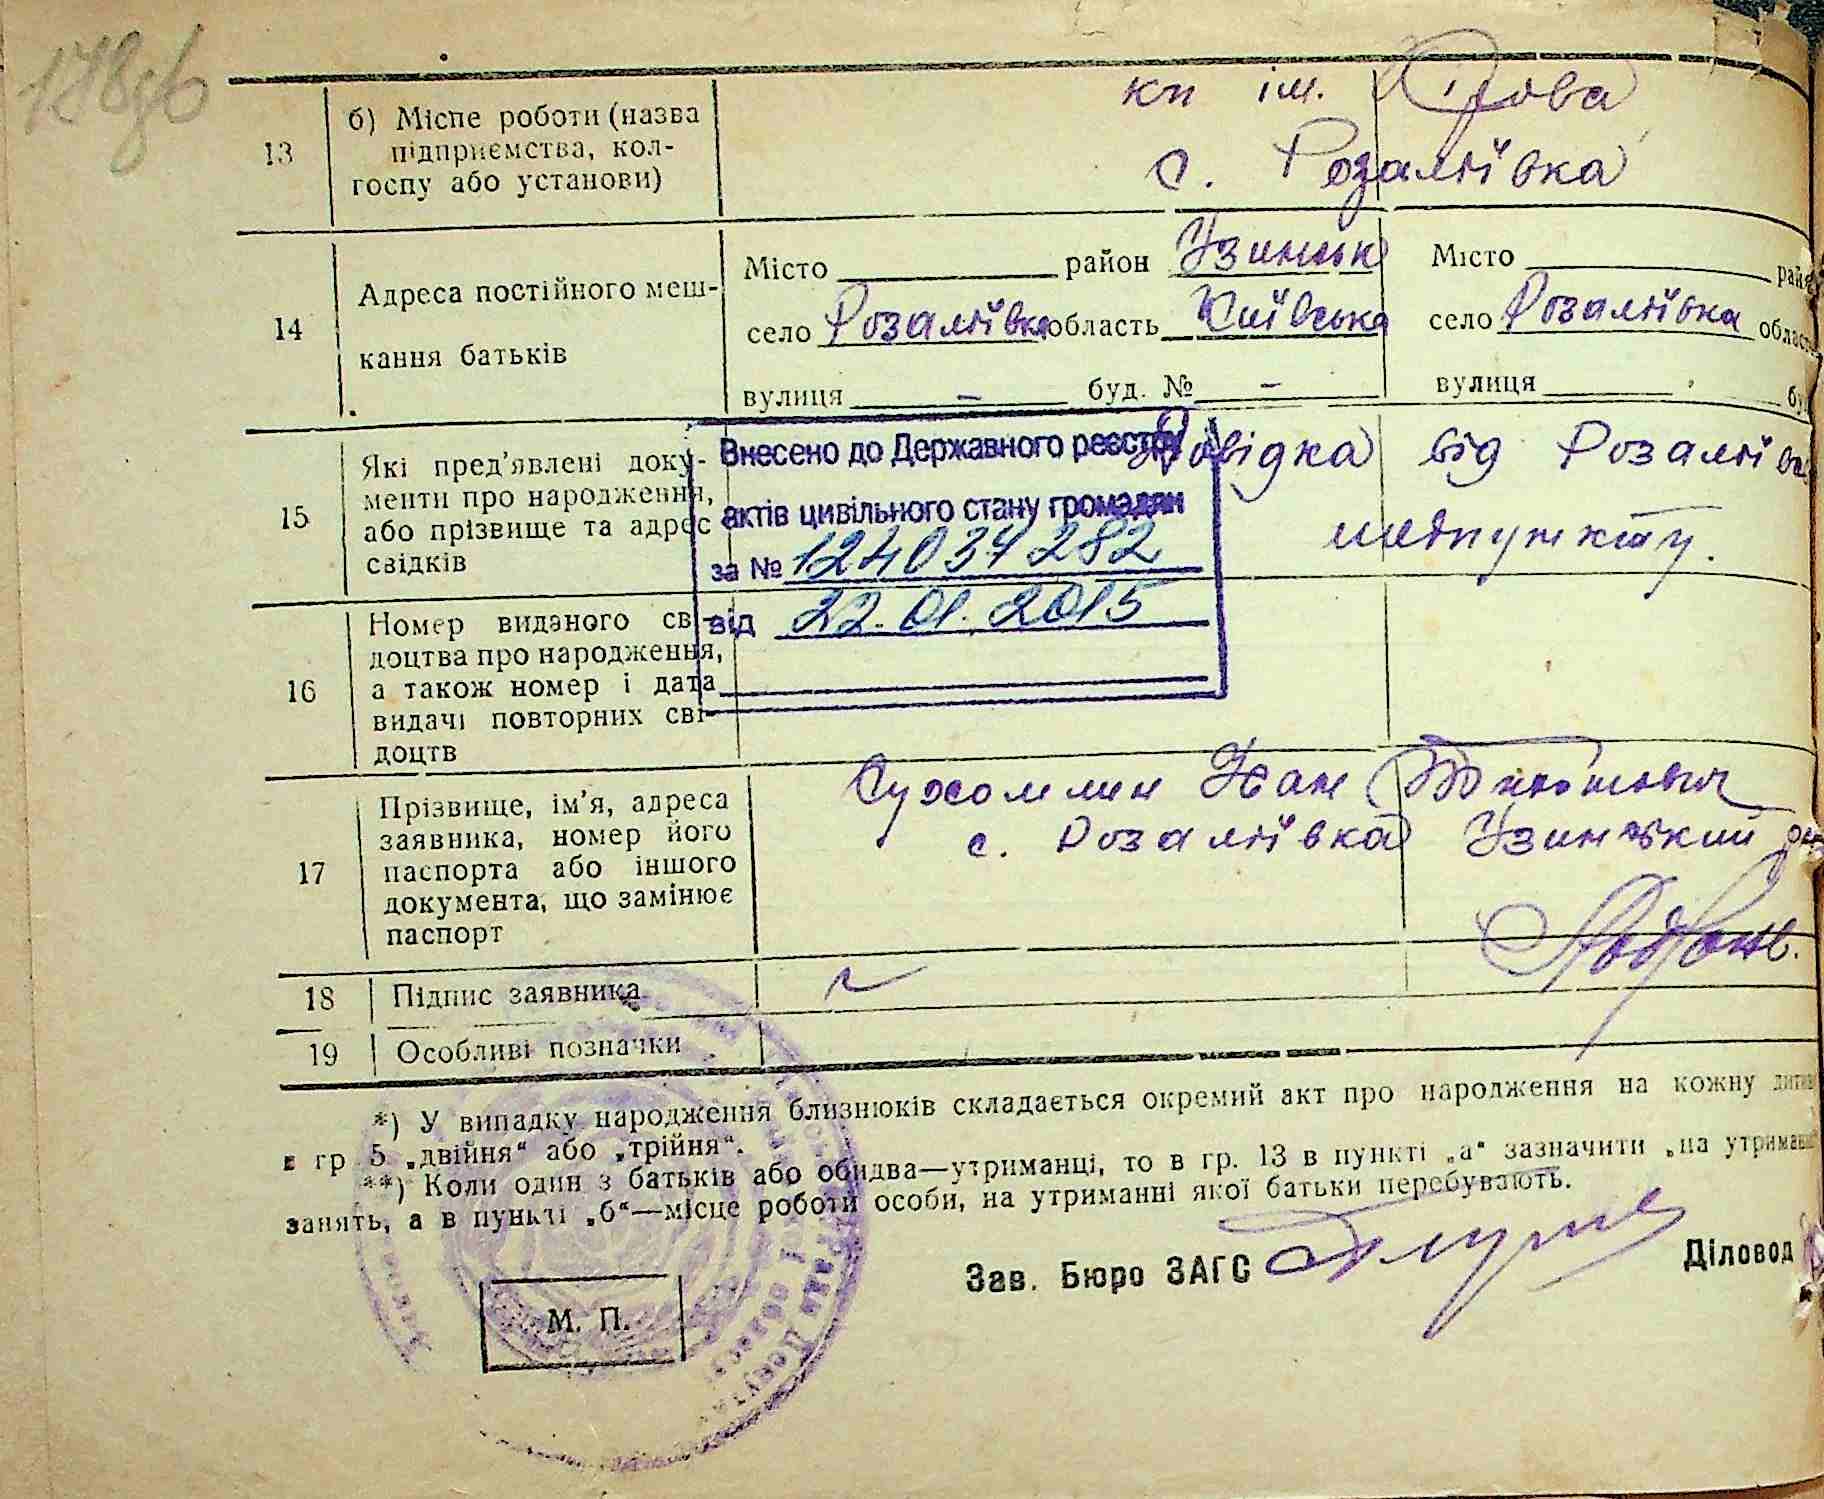 13
б) Місце роботи (назва
підприємства, кол-
госпу або установи)
кп ім. Кірова
с. Розаліївка
14
Адреса постійного меш-
кання батьків
Місто район Узинськ
село Розаліївка область Київська
вулиця - буд. № -
Місто
село Розаліївка област
вулиця
15
Які пред'явлені доку-
менти про народження,
або прізвище та адрес
свідків
Довідка від Розаліїв
медпункту.
Внесено до Державного реєстру
актів цивільного стану громадян
за № 124034282
від 22.01.2015
16
Номер виданого сві-
доцтва про народження,
а також номер і дата
видачі повторних сві-
доцтв
17
Прізвище, ім'я, адреса
заявника, номер його
паспорта або іншого
документа, що замінює
паспорт
Сухомлин Іван
с. Розаліївка Узинський
18
Підпис заявника
19
Особливі позначки
*) У випадку народження близнюків складається окремий акт про народження на кожну дитин
в гр 5 „двійня“ або „трійня“.
**) Коли один з батьків або обидва—утриманці, то в гр. 13 в пункті „а“ зазначити „на утриманні
занять, а в пункті „б“—місце роботи особи, на утриманні якої батьки перебувають.
Зав. Бюро ЗАГС
Діловод
М. П.